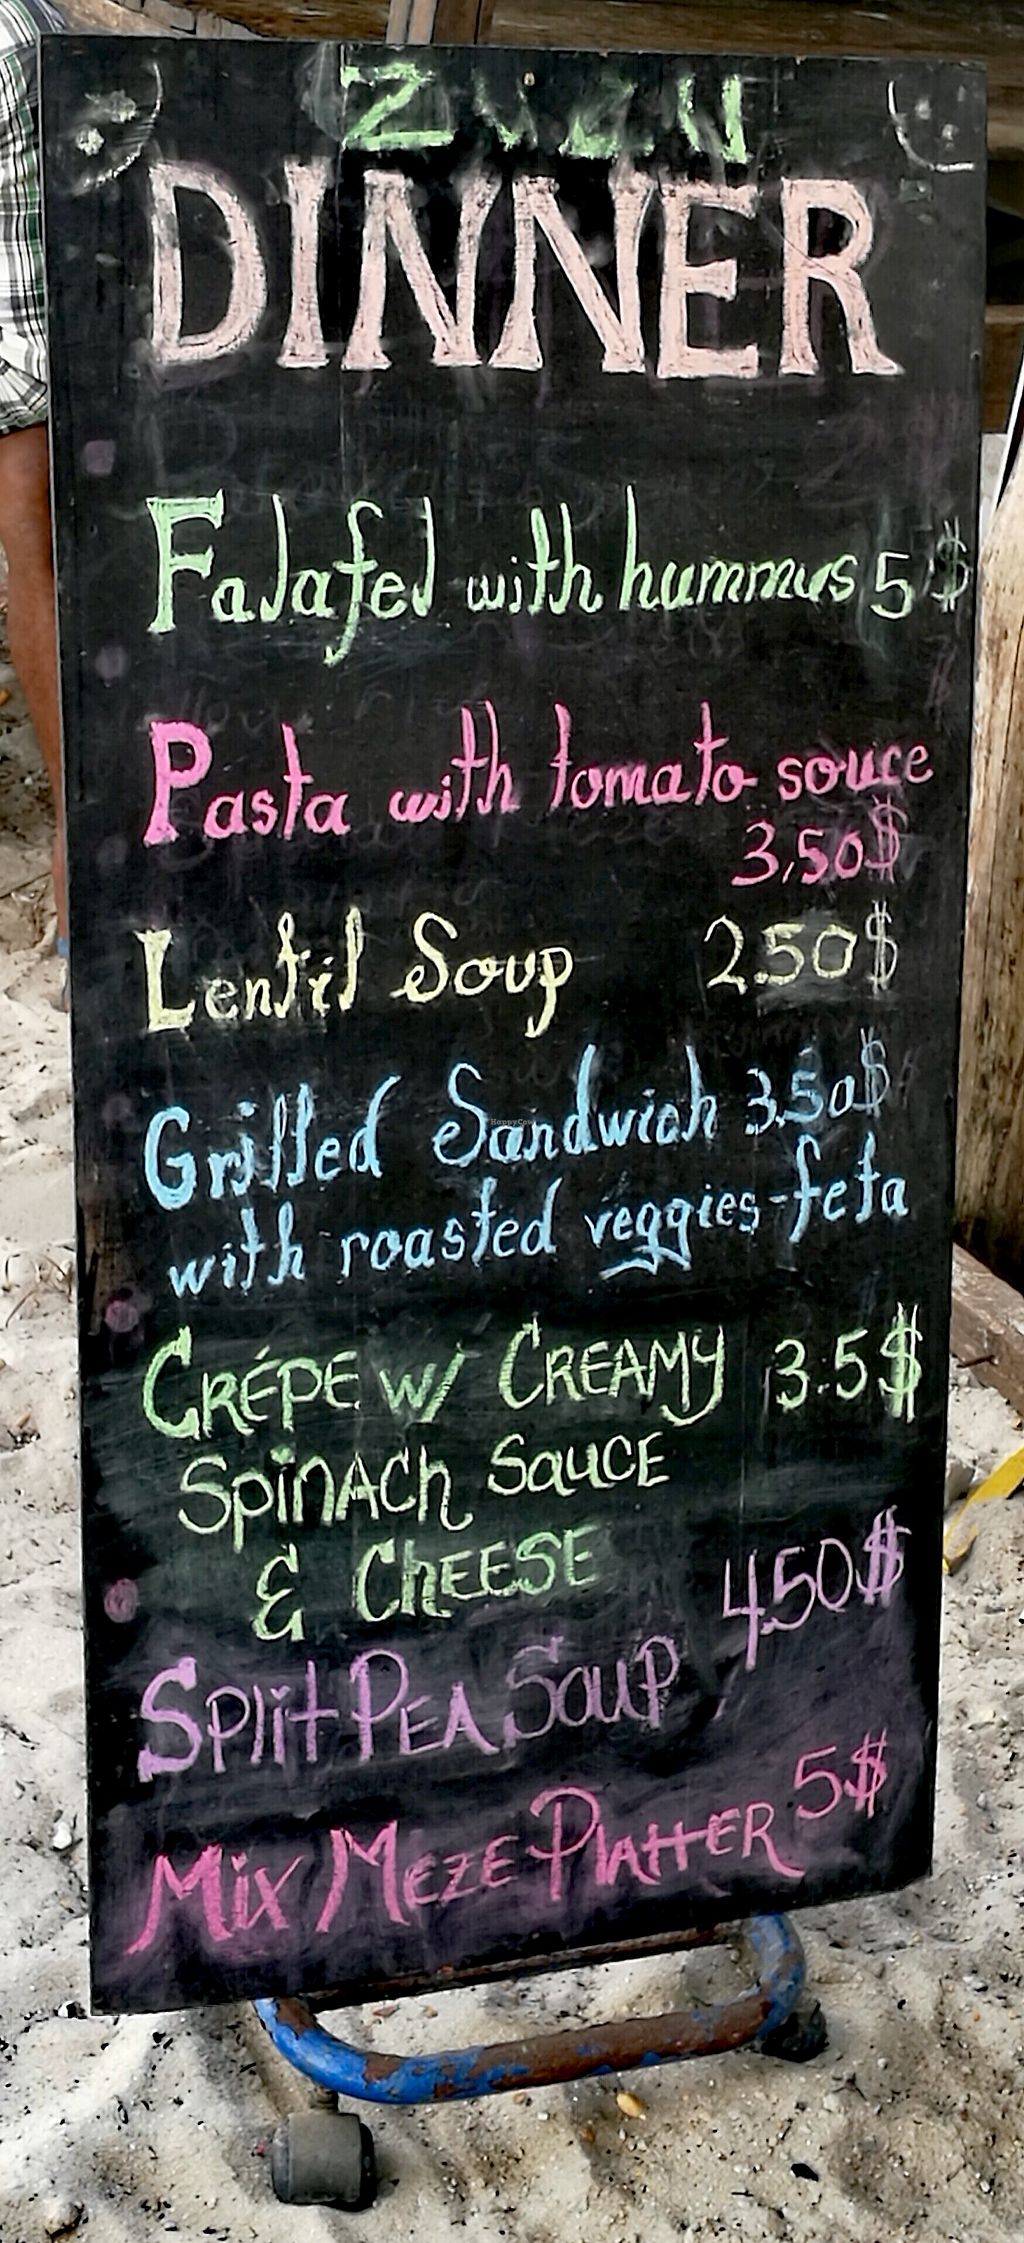 ZUZU
DINNER
Falafel with hummus 5$
Pasta with tomato souce
3,50$
Lentil Soup 2.50$
Grilled Sandwich 3.50$
with roasted veggies-feta
CRÉPE w/ CREAMY 3.5$
SpinACh SauCE
& ChEESE
4.50$
SPlit PEA SouP
Mix MEZE PlAttER 5$
HappyCow